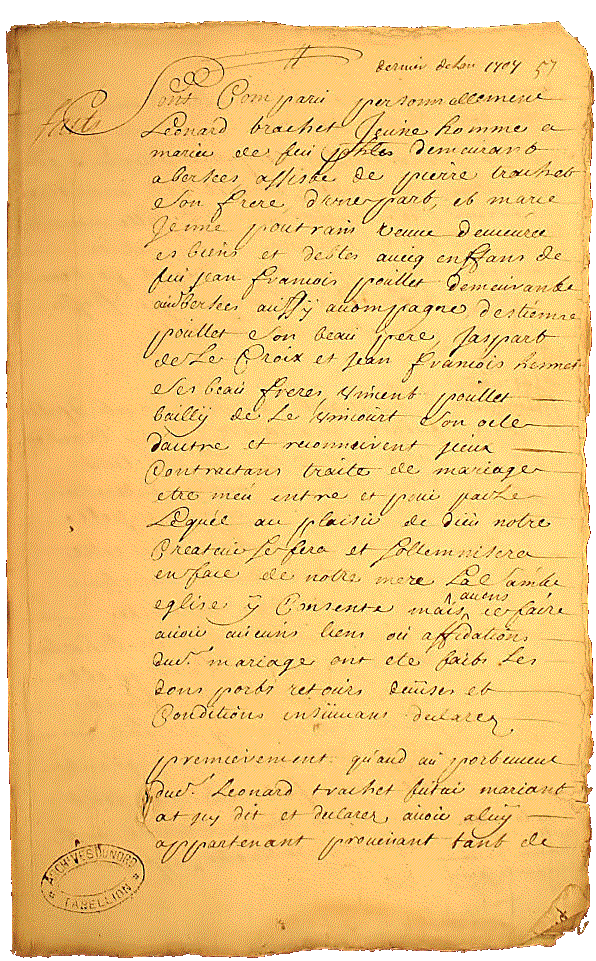 dernier de l'an 1707 57
faits
Sont Comparu personnallement
Leonard trachet Jeune homme a
marier de feu demeurant
a bersees assisté de pierre trachet
son frere, d'une part, et marie
Jenne poutrain veuve demeurée
es biens et debtes avecq enffans de
feu jean francois poullet demeurante
audit bersees aussÿ acompagné d'estienne
poullet son beau pere, Jaspart
de Le Croix et Jean francois hennet
ses beau freres, vincent poullet
bailly de Le vincourt son
d'autre et reconnurent iceux
Contractans traité de mariage
etre meu entre et pour par Le
Lequel au plaisir de dieu notre
Createur se fera et sollemnisera
en face de notre mere La Sainte
eglise sÿ Consente mais, avons
avoir aucuns liens ou affidations
dud. mariage ont eté faits Les
dons ports retours devises et
Conditions ensuivans declarez
premierement quand au portement
dud. Leonard trachet futur mariant
at icy dit et declarez avoir a luÿ
appartenant provenant tant de
ARCHIVES DU NORD
TABELLION